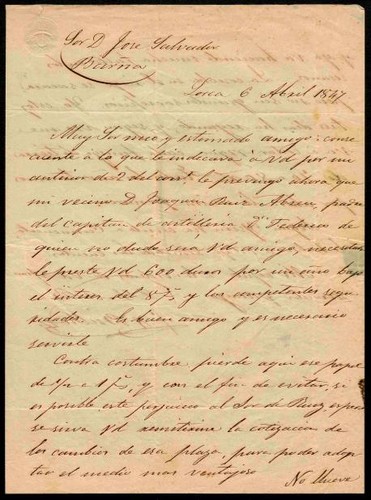 Sor D. Jose Salvador
Barña
Lorca 6 Abril 1847
Muy Sor mio y estimado amigo: como
cuente á la que le indicará á Vd por mi
anterior de 2 del corrte le prevengo ahora que
mi vecino D. Joaquin Ruiz Abreu, padre
del capitan de artilleria Dn Federico de
quien no dudo será Vd amigo, necesita
le preste Vd 600 duros por un año bajo
el interes del 8 % y las competentes segu
ridades. Es buen amigo y es necesario
servirle
Contra costumbre pierde aqui ese papel
de ¾ a 1 %, y con el fin de evitar, si
es posible este perjuicio al Sor de Ruiz, espero
se sirva Vd remitirme la cotizacion de
los cambios de esa plaza, para poder adop
tar el medio mas ventajoso
No llueve